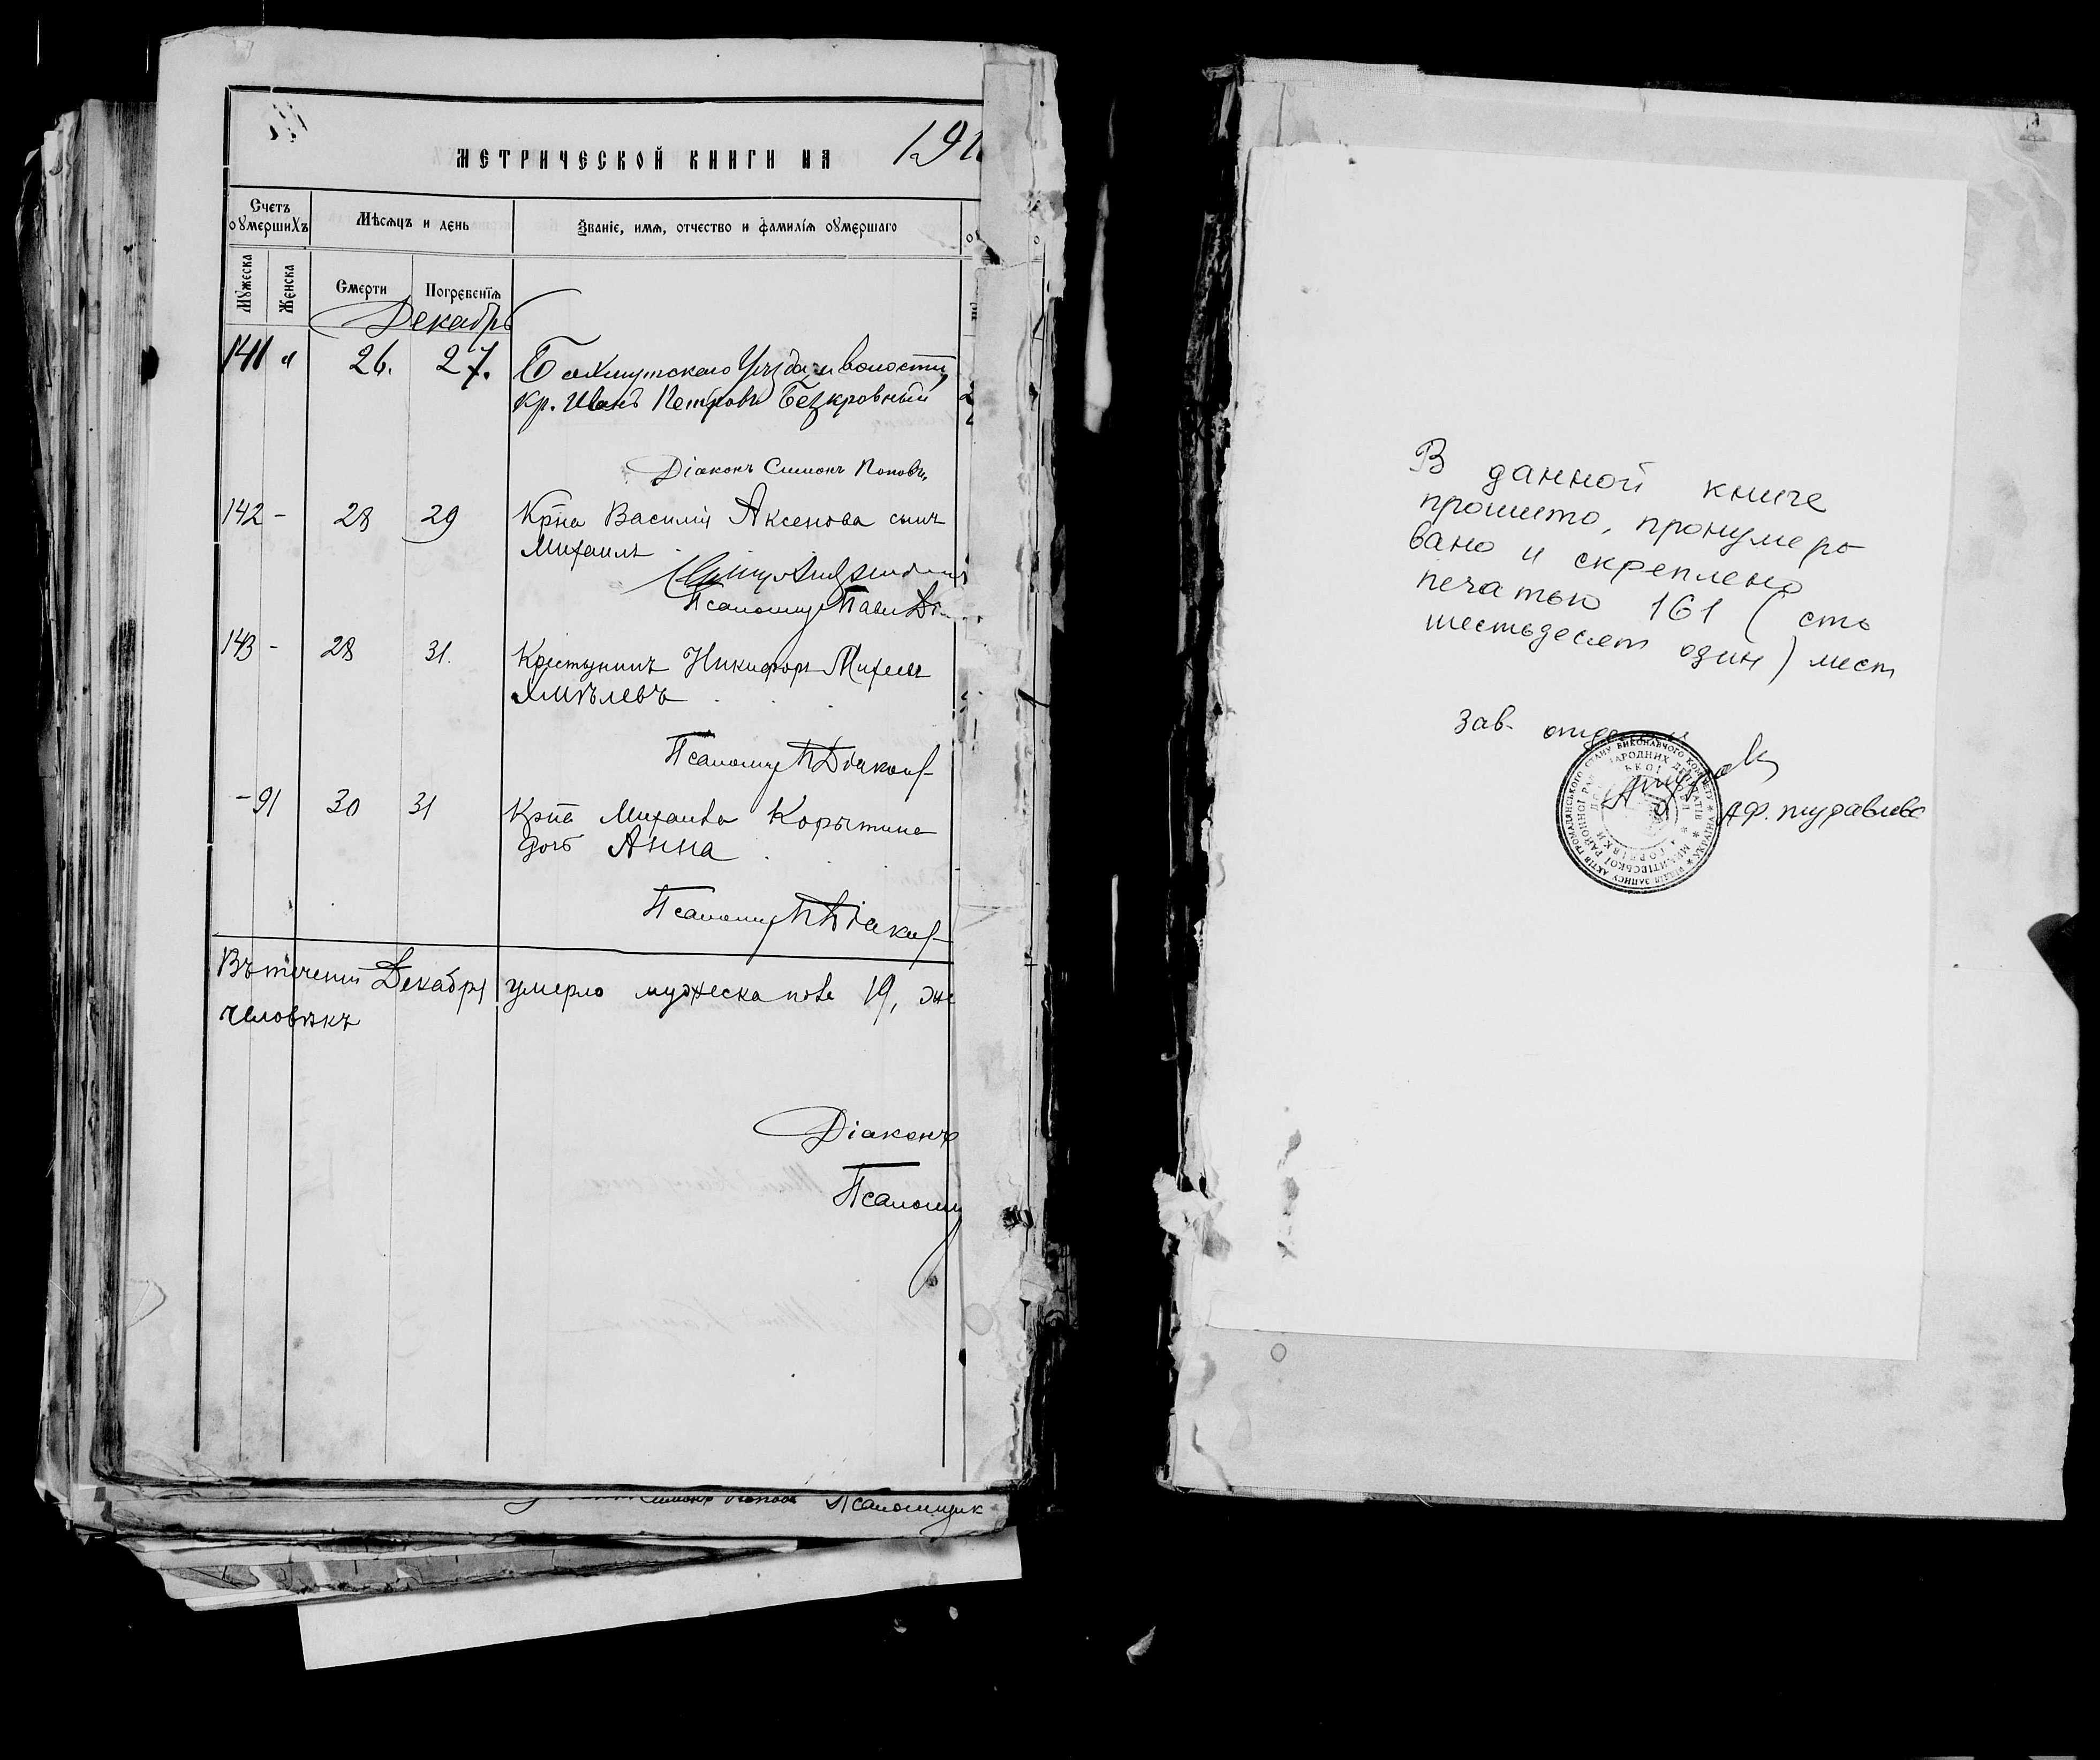 МЕТРИЧЕСКОЙ КНИГИ НА 191
Счетъ оумершихъ
Мѣсяцъ и день
Званіе, имя, отчество и фамилія оумершаго
Мужеска
Женска
Смерти
Погребенія
Декабрь
141 26. 27. Бахмутскаго Уѣзда и волости,
кр. Иванъ Петровъ Безкровный
Діаконъ Симонъ Поповъ
142 - 28 29 Крѣна Василія Аксенова сынъ
Михаилъ
Псаломщ Павл
143 - 28 31. Крестьянинъ Никифоръ Михеевъ
Хмѣлевъ
Псаломщ П Діаков
- 91 30 31 Крѣна Михаила Корытина
дочь Анна
Псаломщ П Діаков
Въ теченіи Декабря умерло мужеска пола 19, же
человѣкъ
Діаконъ
Псаломщ
Симонъ Поповъ Псаломщик
В данной книге
прошито, пронумеро
вано и скреплено
печатью 161 (сто
шестьдесят один) лист
Зав. отделом
А.Ф.
ВИКОНАВЧОГО КОМІТЕТУ * УКРАЇНА * ВІДДІЛ ЗАПИСУ АКТІВ ГРОМАДЯНСЬКОГО СТАНУ
НАРОДНИХ ДЕПУТАТІВ * МИКИТІВСЬКОЇ РАЙОННОЇ РАДИ
М. ГОРЛІВКИ